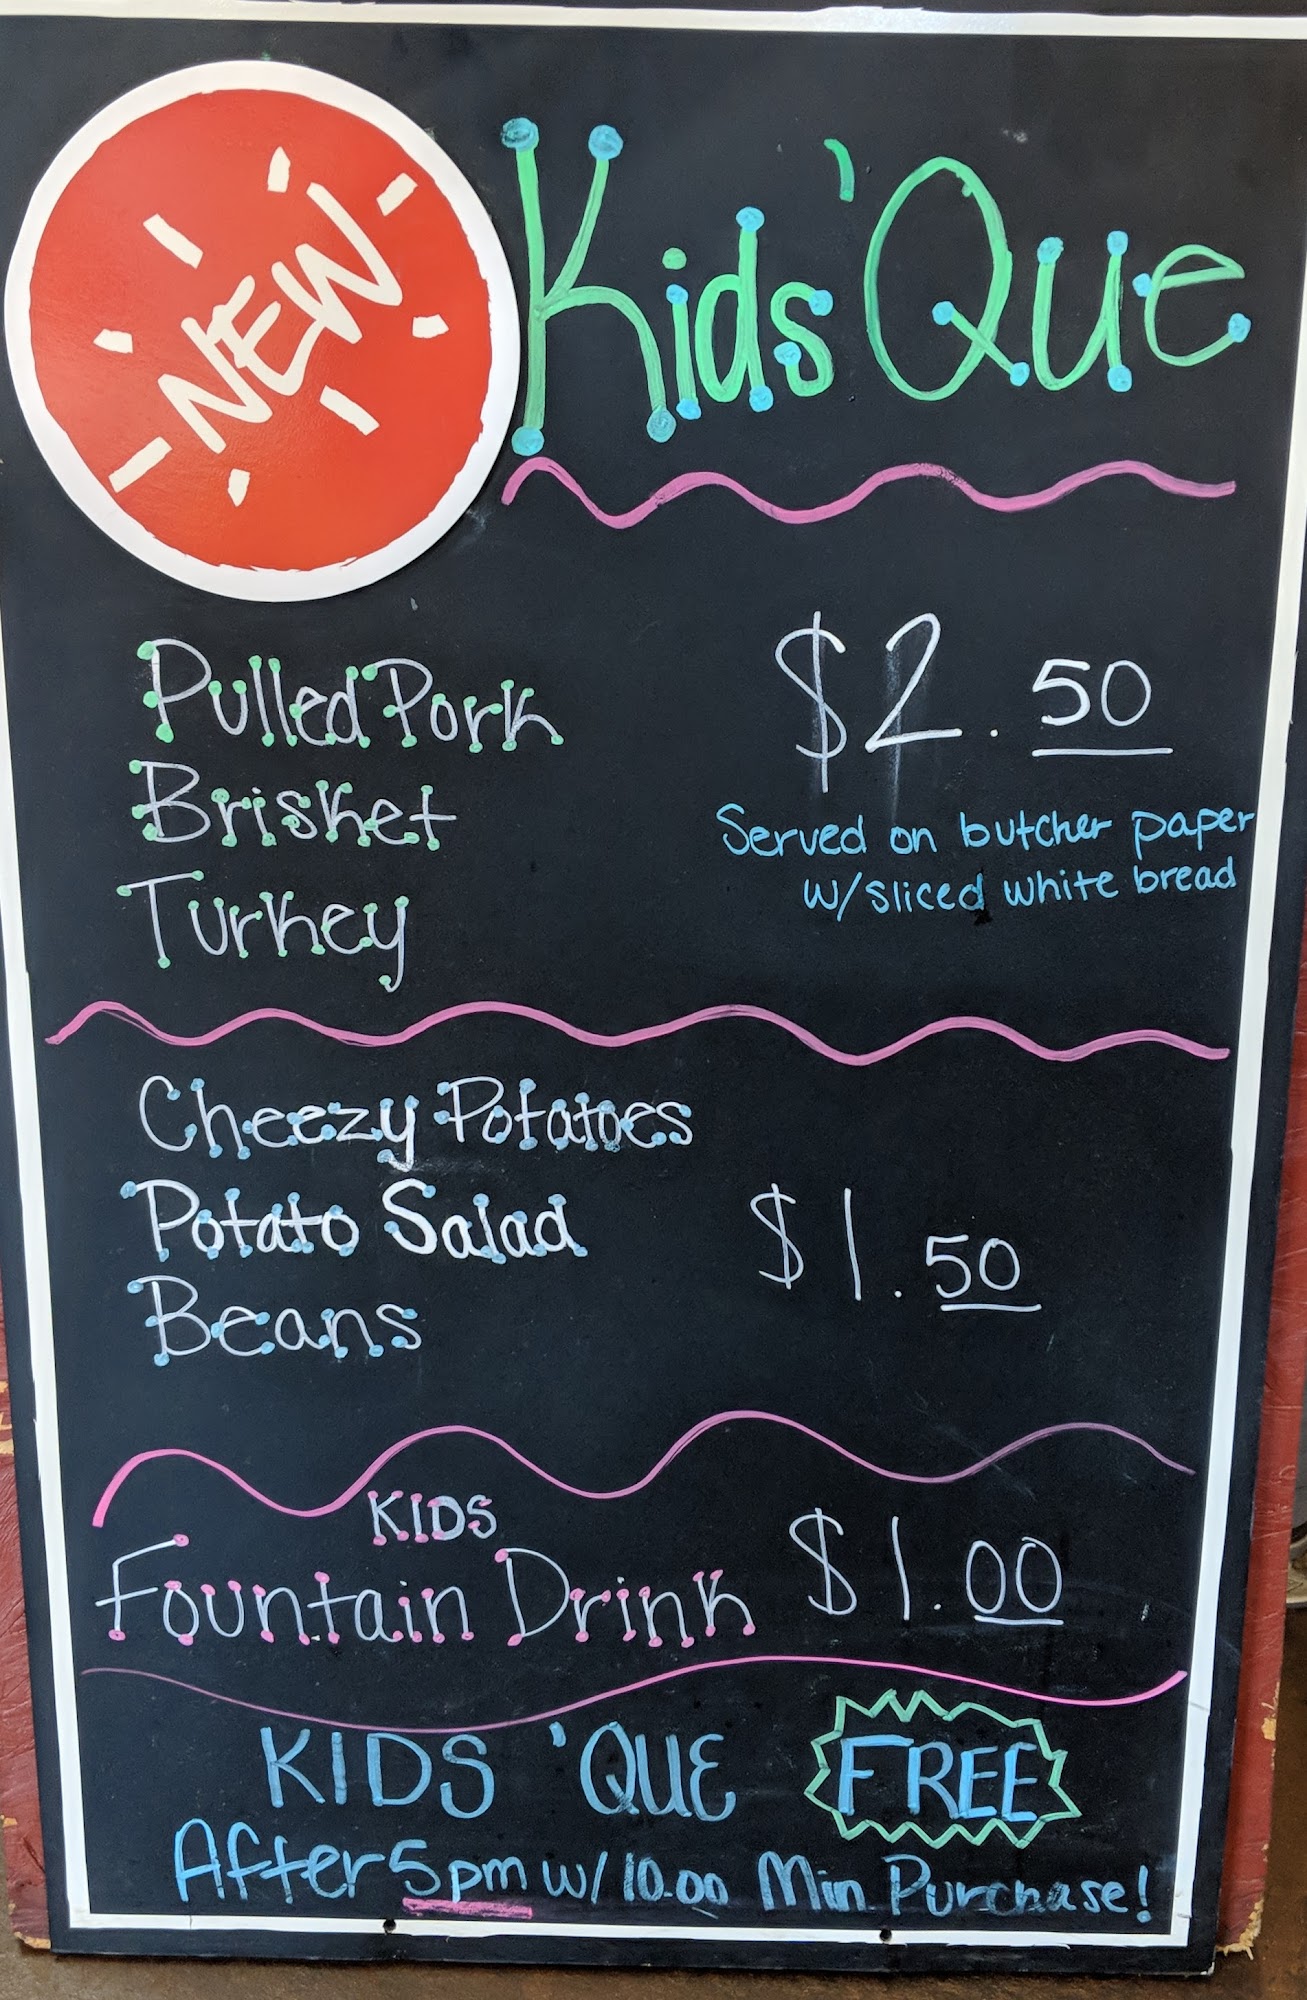 NEW
Kids 'Que
Pulled Pork
Brisket
Turkey
$2.50
Served on butcher paper
w/sliced white bread
Cheezy Potatoes
Potato Salad
Beans
$1.50
KIDS
Fountain Drink $1.00
KIDS 'QUE FREE
After 5pm w/10.00 Min Purchase!